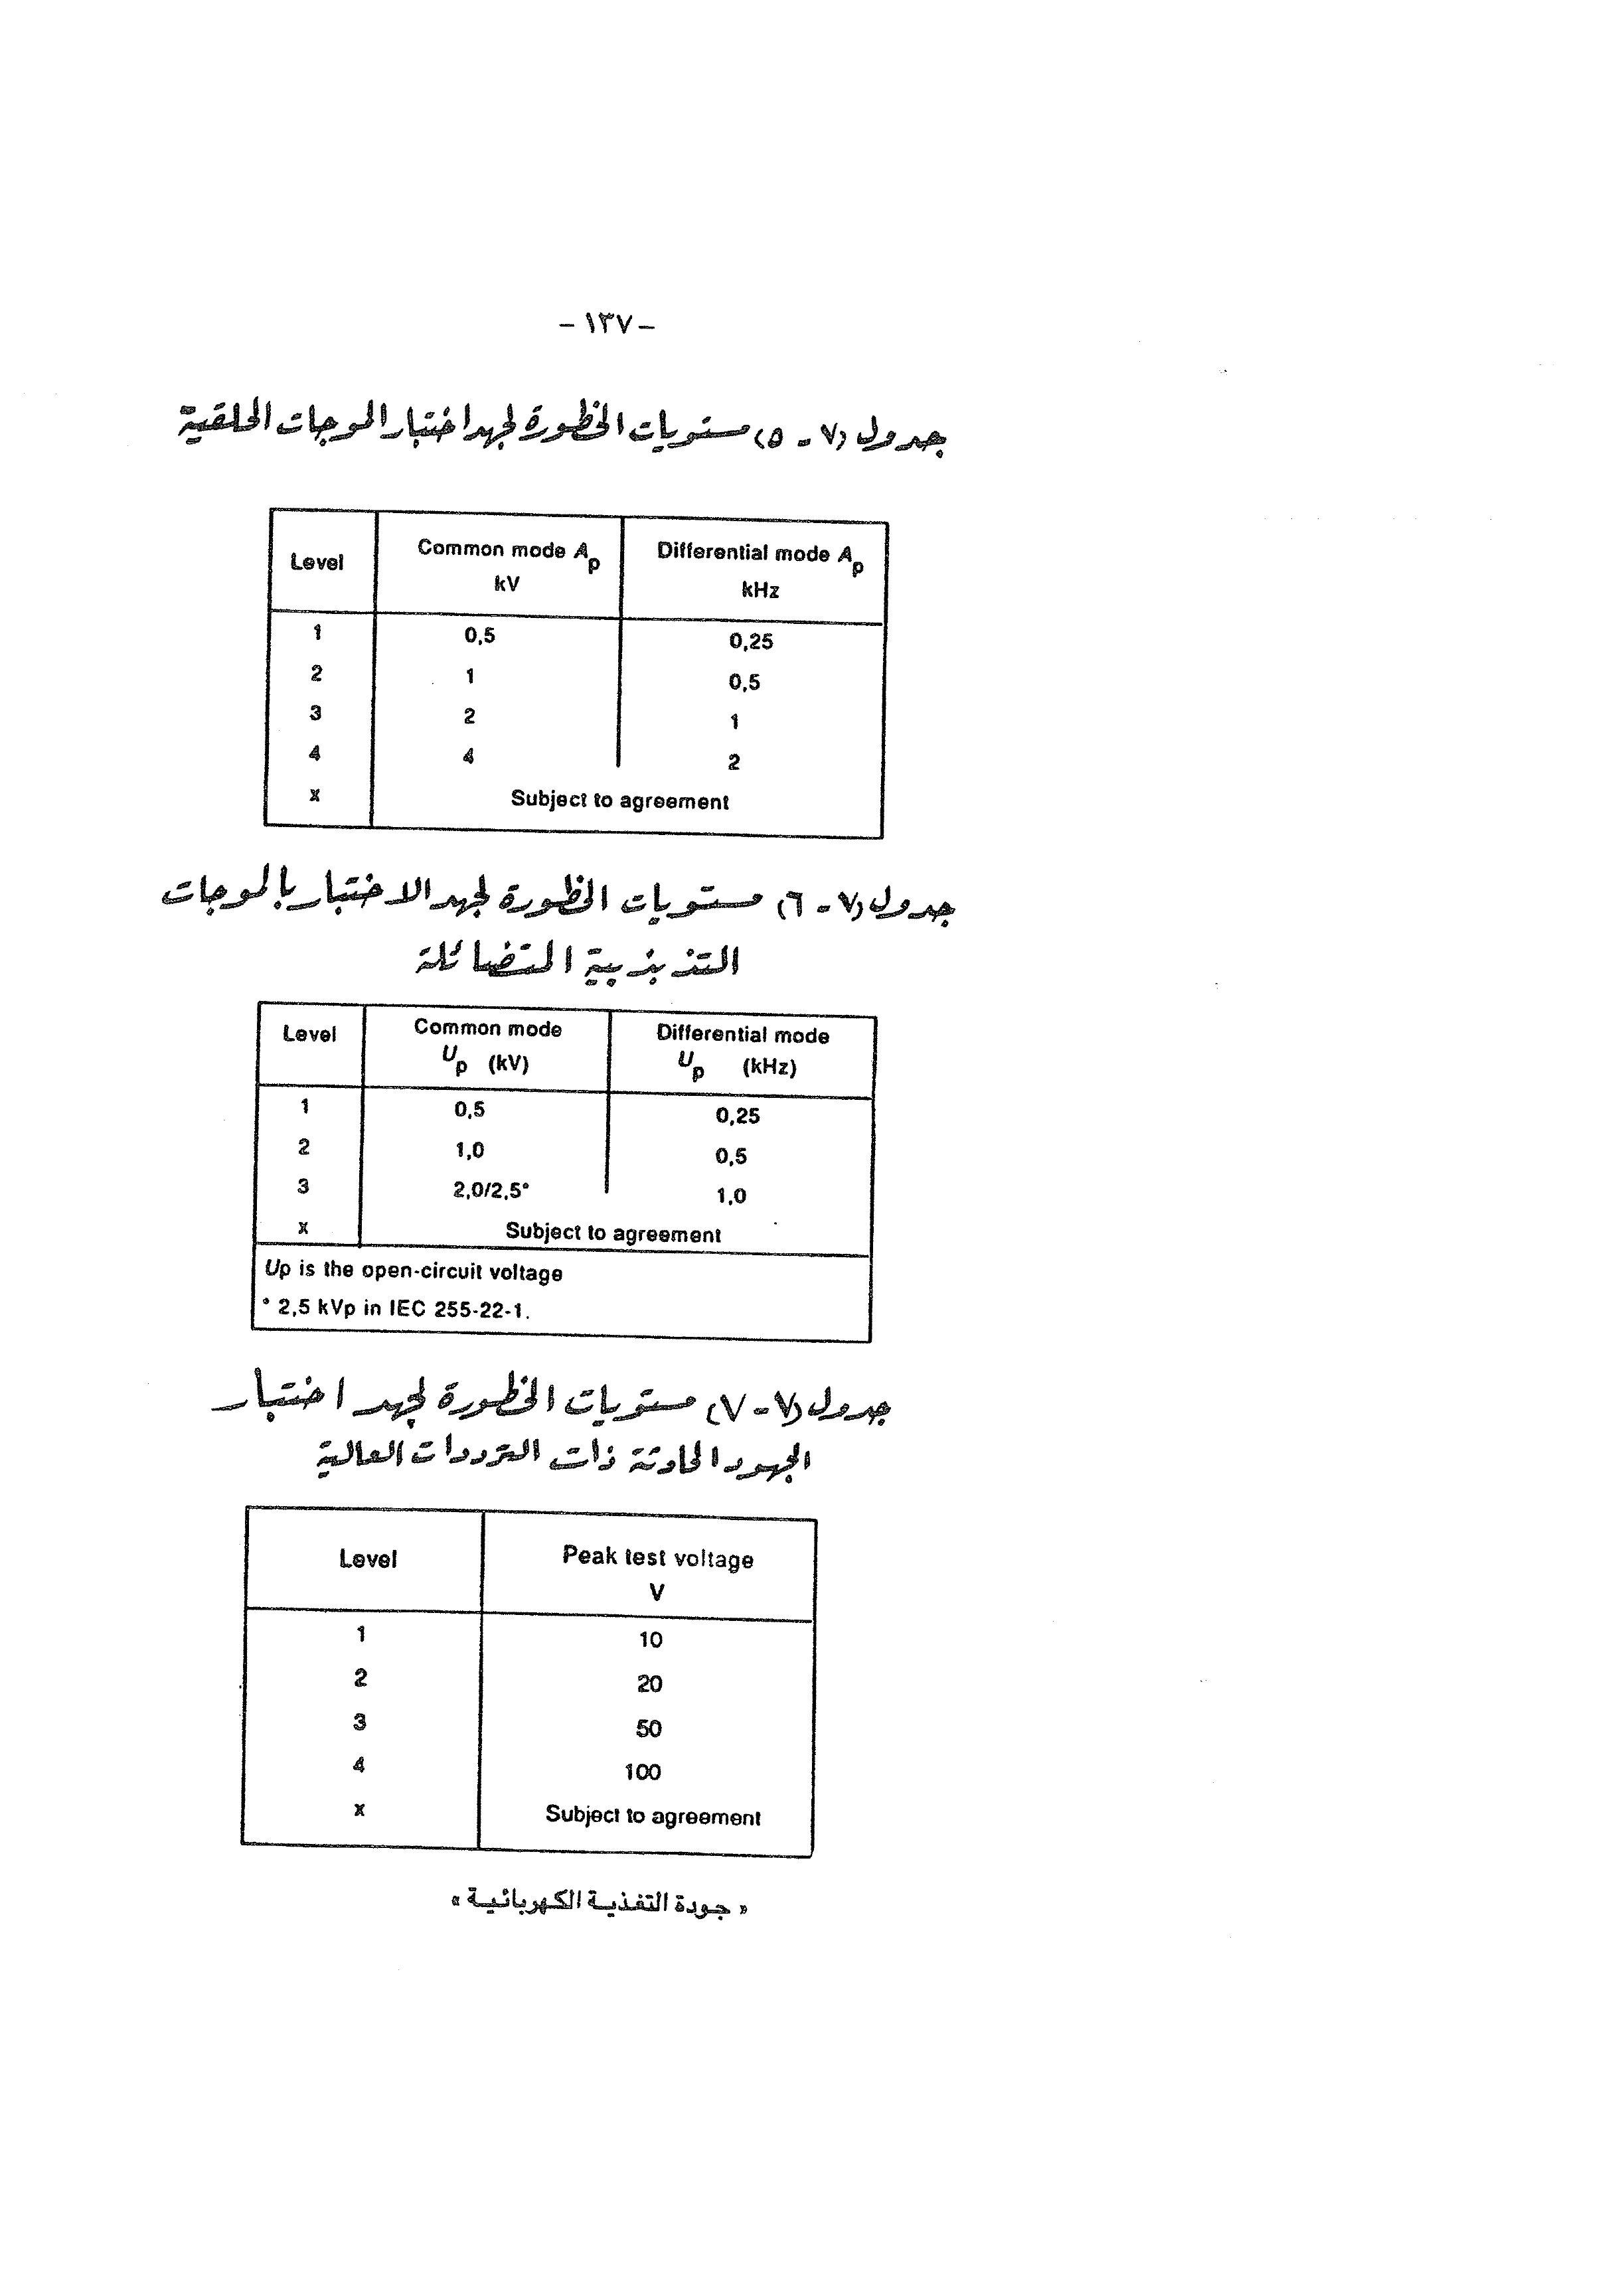 - ١٣٧ -
جدول (٧ - ٥) مستويات الخطورة لجهد اختبار الموجات الحلقية
Level Common mode Ap Differential mode Ap
kV kHz
1 0,5 0,25
2 1 0,5
3 2 1
4 4 2
x Subject to agreement
جدول (٧ - ٦) مستويات الخطورة لجهد الاختبار بالموجات
التذبذبية المتضائلة
Level Common mode Differential mode
Up (kV) Up (kHz)
1 0,5 0,25
2 1,0 0,5
3 2,0/2,5* 1,0
x Subject to agreement
Up is the open-circuit voltage
* 2,5 kVp in IEC 255-22-1.
جدول (٧ - ٧) مستويات الخطورة لجهد اختبار
الجهود الحادثة ذات الترددات العالية
Level Peak test voltage
V
1 10
2 20
3 50
4 100
x Subject to agreement
« جودة التغذية الكهربائية »